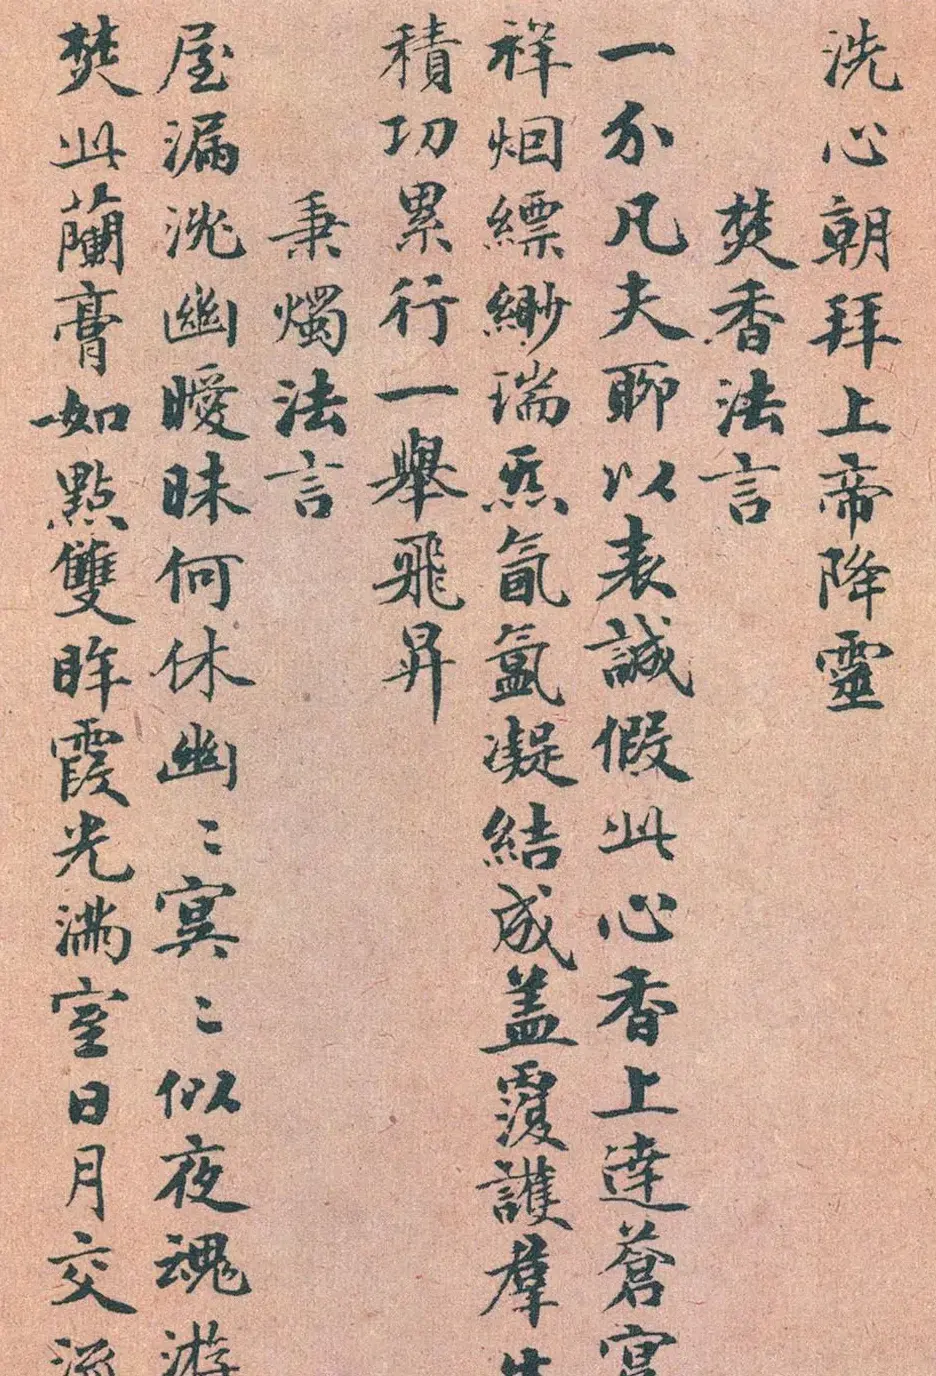 洗心朝拜上帝降靈
焚香法言
一介凡夫聊以表誠假此心香上達蒼穹
祥烟縹緲瑞炁氤氳凝結成蓋覆護羣生
積功累行一舉飛昇
秉燭法言
屋漏沈幽曖昧何休幽〻冥〻似夜魂游
焚此蘭膏如點雙眸霞光滿室日月交流